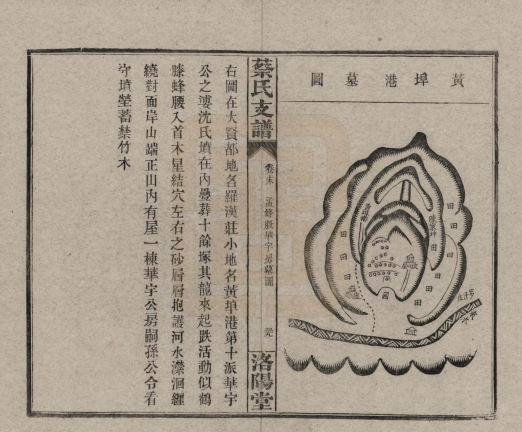 黃埠港墓圖
田
田
田
田
田
田
田
田
蔡氏支譜
卷末
孟修嚴華字房墓圖
洛陽堂
右圖在大賢都地名羅漢莊小地名黃埠港第十派華宇
公之婁沈氏墳在內疊葬十餘塚其龍來起跌活動似鶴
膝蜂腰入首木星結穴左右之砂層層抱護河水瀠洄纏
繞對面岸山端正山內有屋一棟華宇公房嗣孫公令看
守墳塋蓄禁竹木